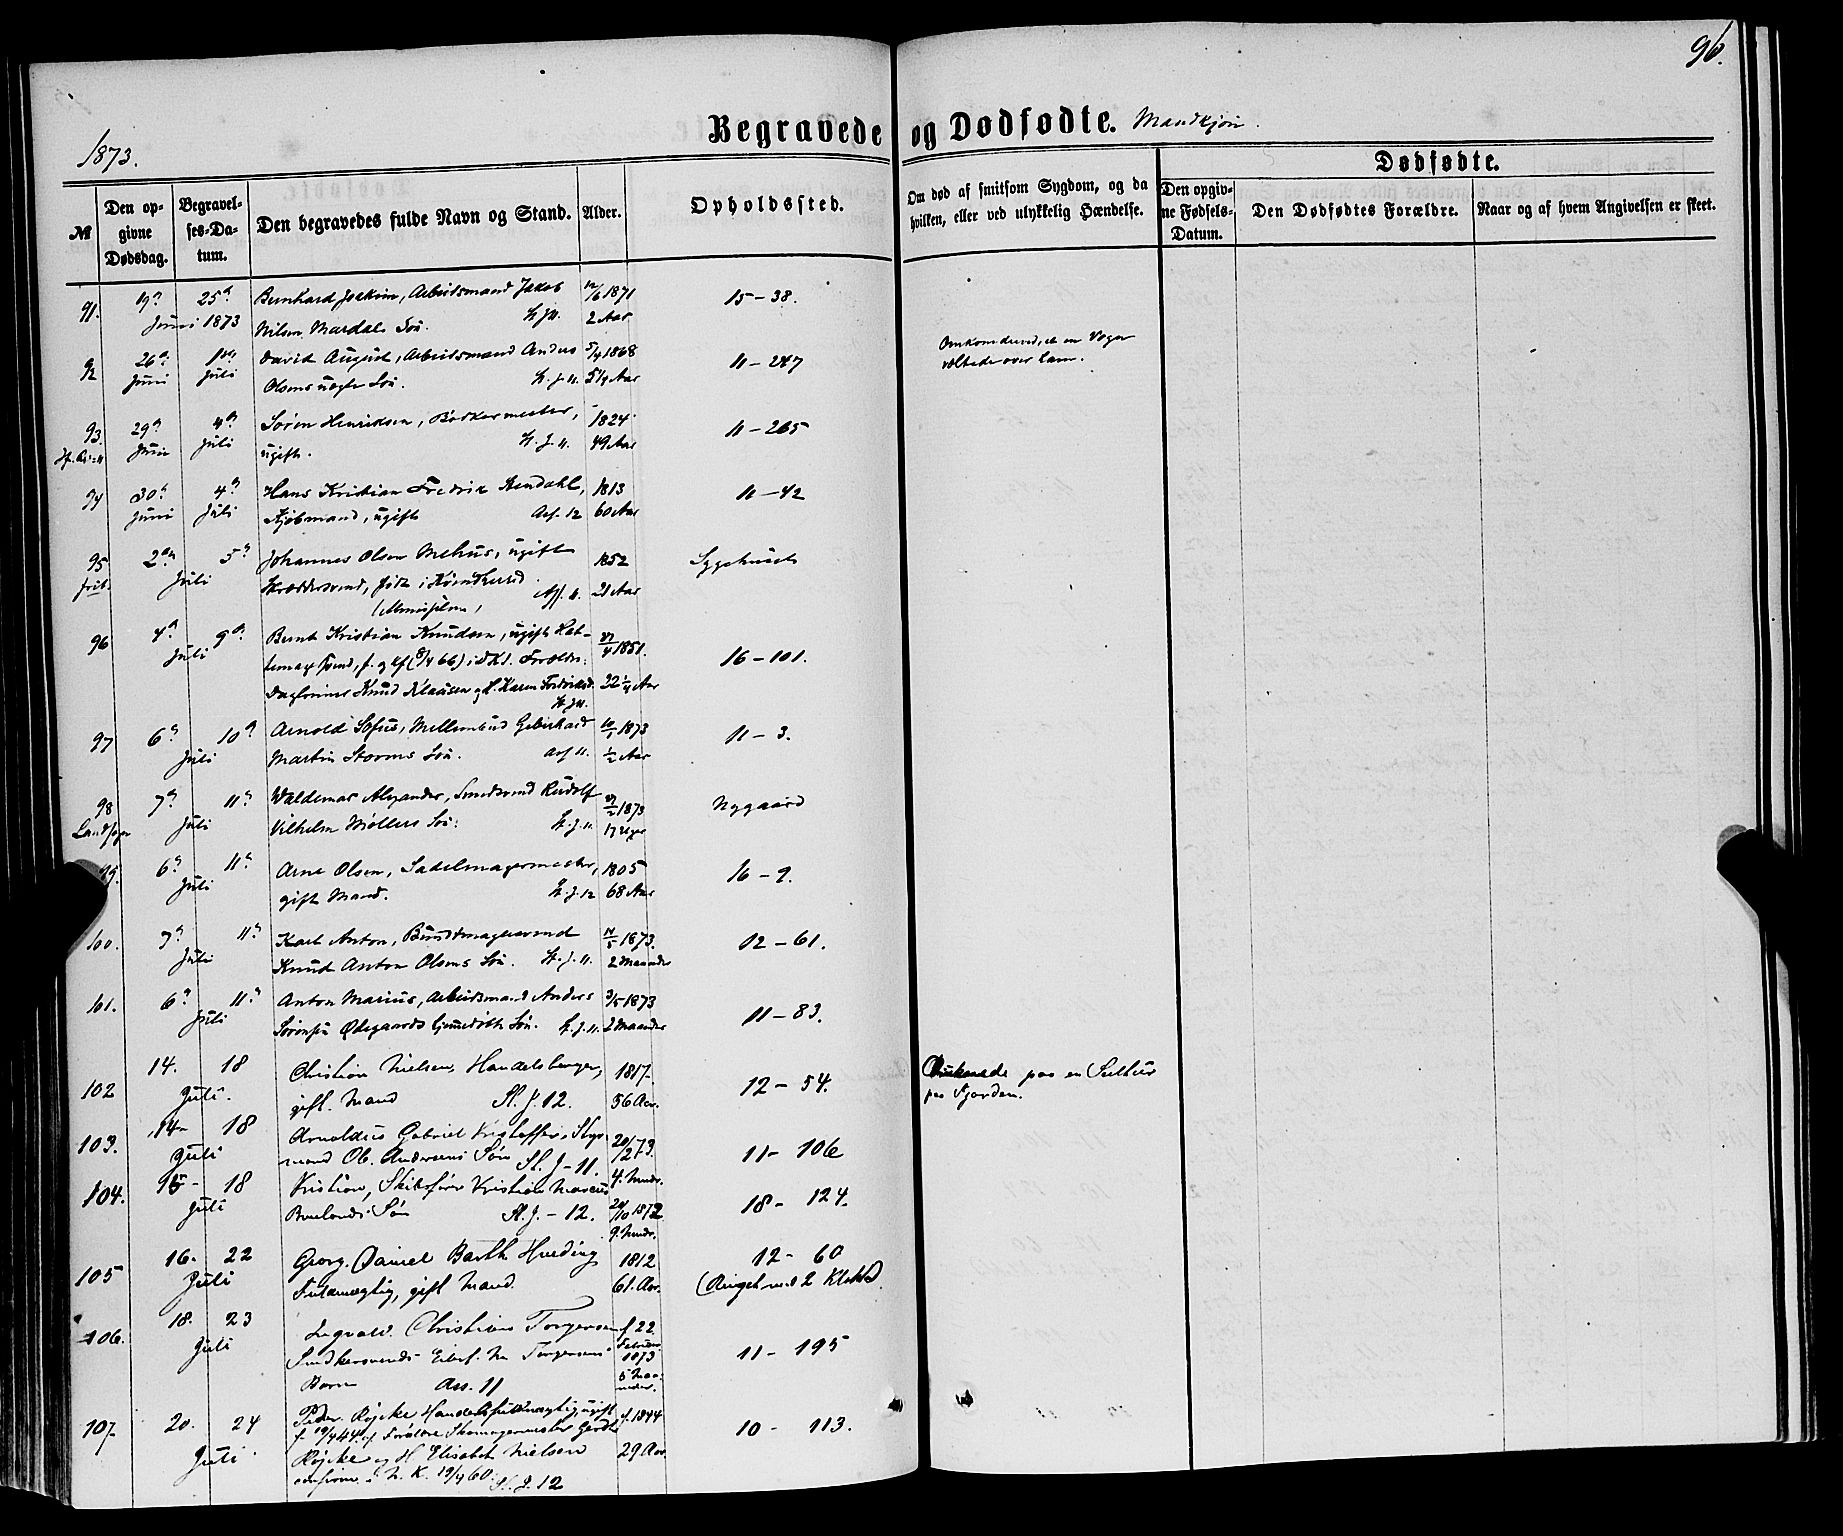 96.
Begravede og Dødfødte. Mandkjøn.
1873.
№
Den opgivne Dødsdag.
Begravelses-Datum.
Den begravedes fulde Navn og Stand.
Alder.
Opholdssted.
Om død af smitsom Sygdom, og da hvilken, eller ved ulykkelig Hændelse.
Dødfødte.
Den opgivne Fødsels-Datum.
Den Dødfødtes Forældre.
Naar og af hvem Angivelsen er skeet.
91. 19de 25de Bernhard Joakim, Arbeidsmand Jakob 12/6 1871 15-38.
Juni 1873 Nilsen Mardals Søn. St. J. 11. 2 Aar
92 26de 1ste David August, Arbeidsmand Anders 5/4 1868 11-247
Juni Juli Olsens uægte Søn. St. J. 11. 5 1/4 Aar
Omkom derved, at en Vogn
væltede over ham.
93. 29de 4de Søren Henriksen, Bødkermester, 1824 11-265
Juni Juli ugift. St. J. 11. 49 Aar
94 30te 4de Hans Kristian Fredrik Stendahl, 1813 11-42
Juni Juli Kjøbmand, ugift Ass. 12 60 Aar
95 2den 5te Johannes Olsen Mehus, ugift 1852 Sygehuset
frib. Juli Skræddersvend, født i Kvindherred. Ass. 11. 21 Aar
96 4de 9de Bernt Kristian Knudsen, ugift Hat- 27/4 1851. 16-101.
Juli temagersvend, f. og kf (8/4 66) i DK. Forældre:
Dagleiner Knud Klausen og H. Karen Fredriksd. 22 1/4 Aar
St. J. 11.
97 6te 10de Arnold Sofus, Mellembud Geberhard 10/1 1873 11-3.
Juli Martin Storms Søn. Ass 11. 1/2 Aar
98 7de 11te Waldemar Alexander, Smedsvend Rudolf 1873 Nygaard
Landsogn Juli Vilhelm Møllers Søn. St. J. 11. 17 Uger
99. 6te 11te Arne Olsen, Sadelmagermester, 1805 16-9.
Juli gift Mand. St. J. 12 68 Aar
100. 7de 11te Karl Anton, Bundtmagersvend 1873. 12-61.
Juli Knud Anton Olsens Søn. St. J. 11. 2 Maaneder
101. 6te 11te Anton Marius, Arbeidsmand Anders 9/5 1873 11-83.
Juli Sørensen Ødegaards Søn. St. J. 11. 2 Maaneder
102 14. 18 Christian Nielsen, Handelsborger, 1817. 12-54.
Juli. gift Mand St. J. 12. 56 Aar.
Druknede paa en Seiltur
paa Fjorden.
103. 14 18 Arnoldus Gabriel Kristoffer, Styr- 20/2 73. 11-106
Juli mand Ob. Andersens Søn St. J-11. 4. Mndr.
104. 15 18 Kristian, Skibsfører Kristian Marcus 1872 18-124.
Juli Søn St. J.-12. 9. Mndr.
105 16. 22 Georg Daniel Barth Harding 1812 12-60
Juli Fuldmægtig, gift Mand. 61. Aar. (Ringet med 2 Klokker)
106. 18. 23 Ingvald Christian Torgersen f 22 11-195
Juli Snedkersvend Torgersens Februar 1873
Barn Ass. 11 5 Maaneder.
107. 20. 24 Peder Røjcke Handelsfuldmægtig ugift f. 1844 10-113.
f. 19/4 44 af Forældre Skomagermester Gerdt
Juli. Røjcke og H Elisabet Nielsen 29 Aar
confirm. i N. K. 19/4 60. St. J. 12